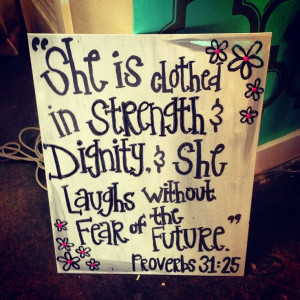 "She is clothed
in Strength &
Dignity, & She
Laughs without
Fear of the
Future."
Proverbs 31:25